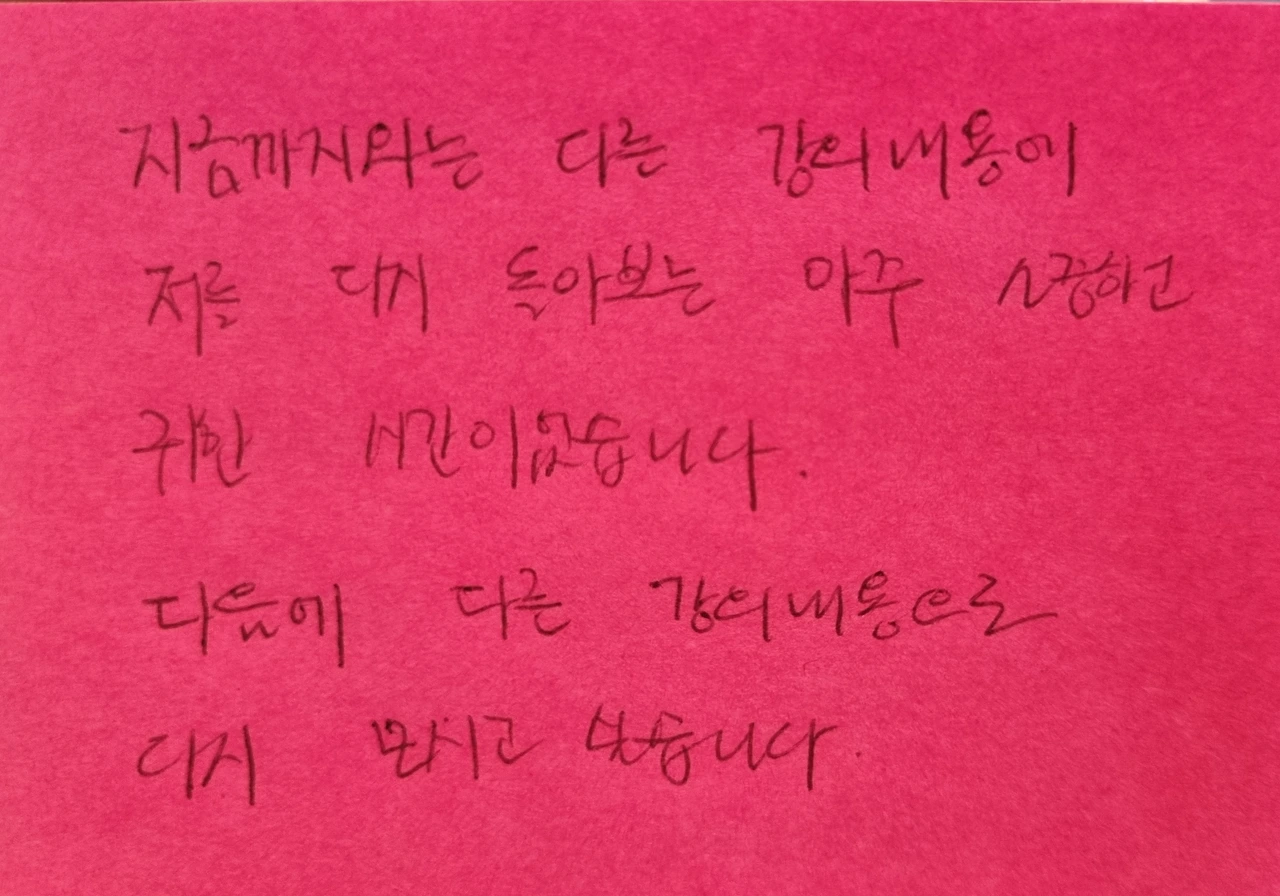 지금까지와는 다른 강의내용에
저를 다시 돌아보는 아주 소중하고
귀한 시간이었습니다.
다음에 다른 강의내용으로
다시 모시고 싶습니다.